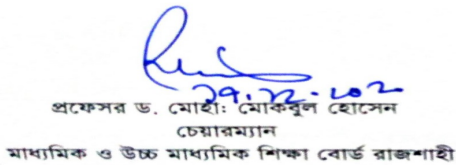 ২৭.১২.২০২০
প্রফেসর ড. মোহা: মোকবুল হোসেন
চেয়ারম্যান
মাধ্যমিক ও উচ্চ মাধ্যমিক শিক্ষা বোর্ড রাজশাহী